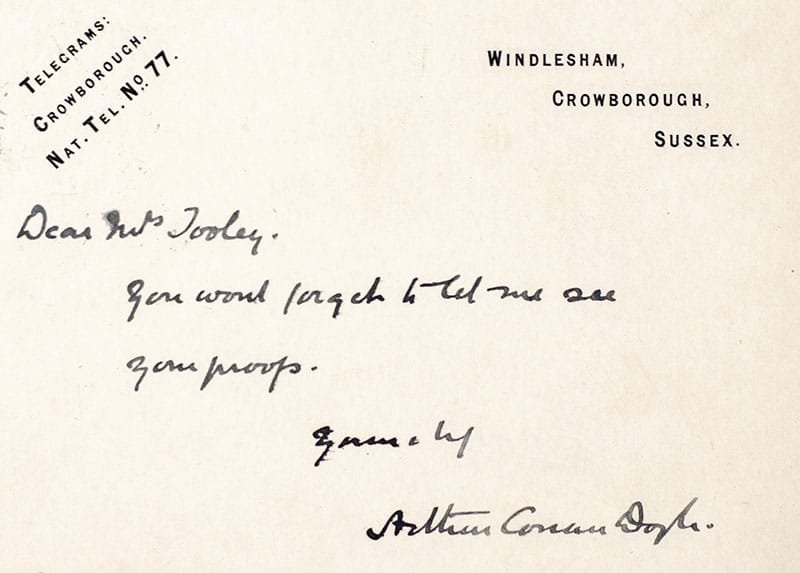 TELEGRAMS:
CROWBOROUGH.
NAT. TEL. NO. 77.
WINDLESHAM,
CROWBOROUGH,
SUSSEX.
Dear Mrs Tooley.
You wont forget to let me see
your proofs.
Yours
Arthur Conan Doyle.